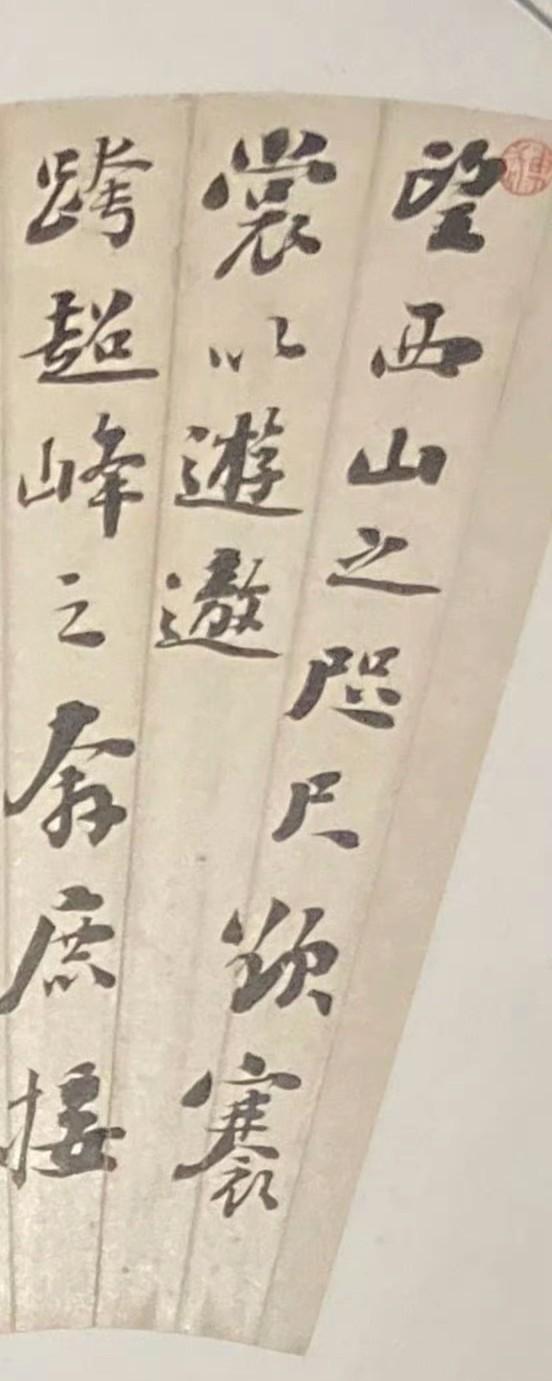 望西山之咫尺欲褰
裳以遊遨
跨超峰之庶接